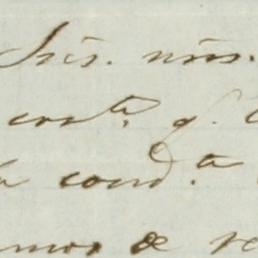 Srs. mos.
cont.a q.
cond.ta
mos de re